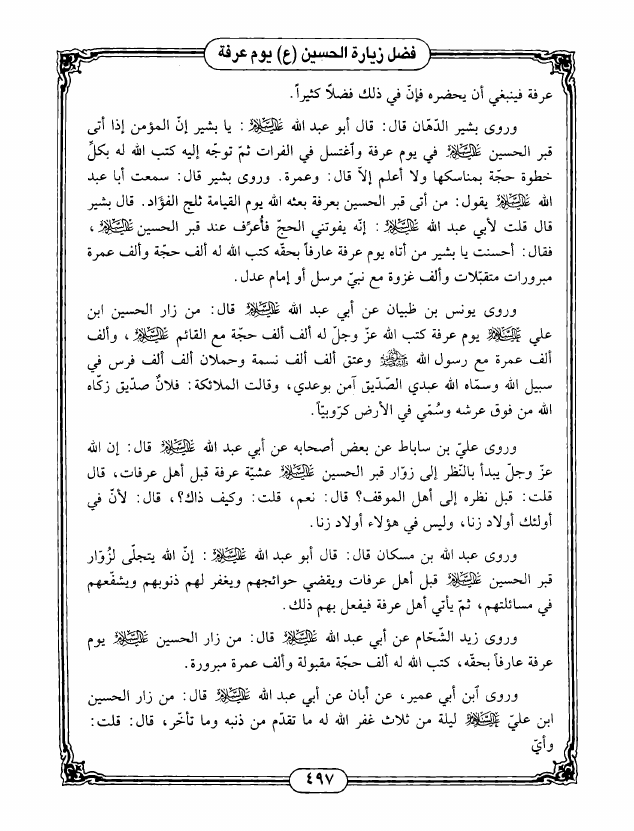 فضل زيارة الحسين (ع) يوم عرفة
عرفة فينبغي أن يحضره فإنّ في ذلك فضلاً كثيراً.
وروى بشير الدّهان قال: قال أبو عبد الله عليه السلام: يا بشير إنّ المؤمن إذا أتى
قبر الحسين عليه السلام في يوم عرفة وآغتسل في الفرات ثمّ توجّه إليه كتب الله له بكلّ
خطوة حجّة بمناسكها ولا أعلم إلاّ قال: وعمرة. وروى بشير قال: سمعت أبا عبد
الله عليه السلام يقول: من أتى قبر الحسين بعرفة بعثه الله يوم القيامة ثلج الفؤاد. قال بشير
قال قلت لأبي عبد الله عليه السلام: إنّه يفوتني الحجّ فأُعرِّف عند قبر الحسين عليه السلام،
فقال: أحسنت يا بشير من أتاه يوم عرفة عارفاً بحقّه كتب الله له ألف حجّة وألف عمرة
مبرورات متقبّلات وألف غزوة مع نبيّ مرسل أو إمام عدل.
وروى يونس بن ظبيان عن أبي عبد الله عليه السلام قال: من زار الحسين ابن
علي عليه السلام يوم عرفة كتب الله عزّ وجلّ له ألف ألف حجّة مع القائم عليه السلام، وألف
ألف عمرة مع رسول الله ﷺ وعتق ألف ألف نسمة وحملان ألف ألف فرس في
سبيل الله وسمّاه الله عبدي الصّدّيق آمن بوعدي، وقالت الملائكة: فلانٌ صدّيق زكّاه
الله من فوق عرشه وسُمّي في الأرض كرّوبيّاً.
وروى عليّ بن ساباط عن بعض أصحابه عن أبي عبد الله عليه السلام قال: إن الله
عزّ وجلّ يبدأ بالنّظر إلى زوّار قبر الحسين عليه السلام عشيّة عرفة قبل أهل عرفات، قال
قلت: قبل نظره إلى أهل الموقف؟ قال: نعم، قلت: وكيف ذاك؟، قال: لأنّ في
أولئك أولاد زنا، وليس في هؤلاء أولاد زنا.
وروى عبد الله بن مسكان قال: قال أبو عبد الله عليه السلام: إنّ الله يتجلّى لزُوّار
قبر الحسين عليه السلام قبل أهل عرفات ويقضي حوائجهم ويغفر لهم ذنوبهم ويشفّعهم
في مسائلتهم، ثمّ يأتي أهل عرفة فيفعل بهم ذلك.
وروى زيد الشّحّام عن أبي عبد الله عليه السلام قال: من زار الحسين عليه السلام يوم
عرفة عارفاً بحقّه، كتب الله له ألف حجّة مقبولة وألف عمرة مبرورة.
وروى آبن أبي عمير، عن أبان عن أبي عبد الله عليه السلام قال: من زار الحسين
ابن عليّ عليه السلام ليلة من ثلاث غفر الله له ما تقدّم من ذنبه وما تأخّر، قال: قلت:
وأيّ
٤٩٧